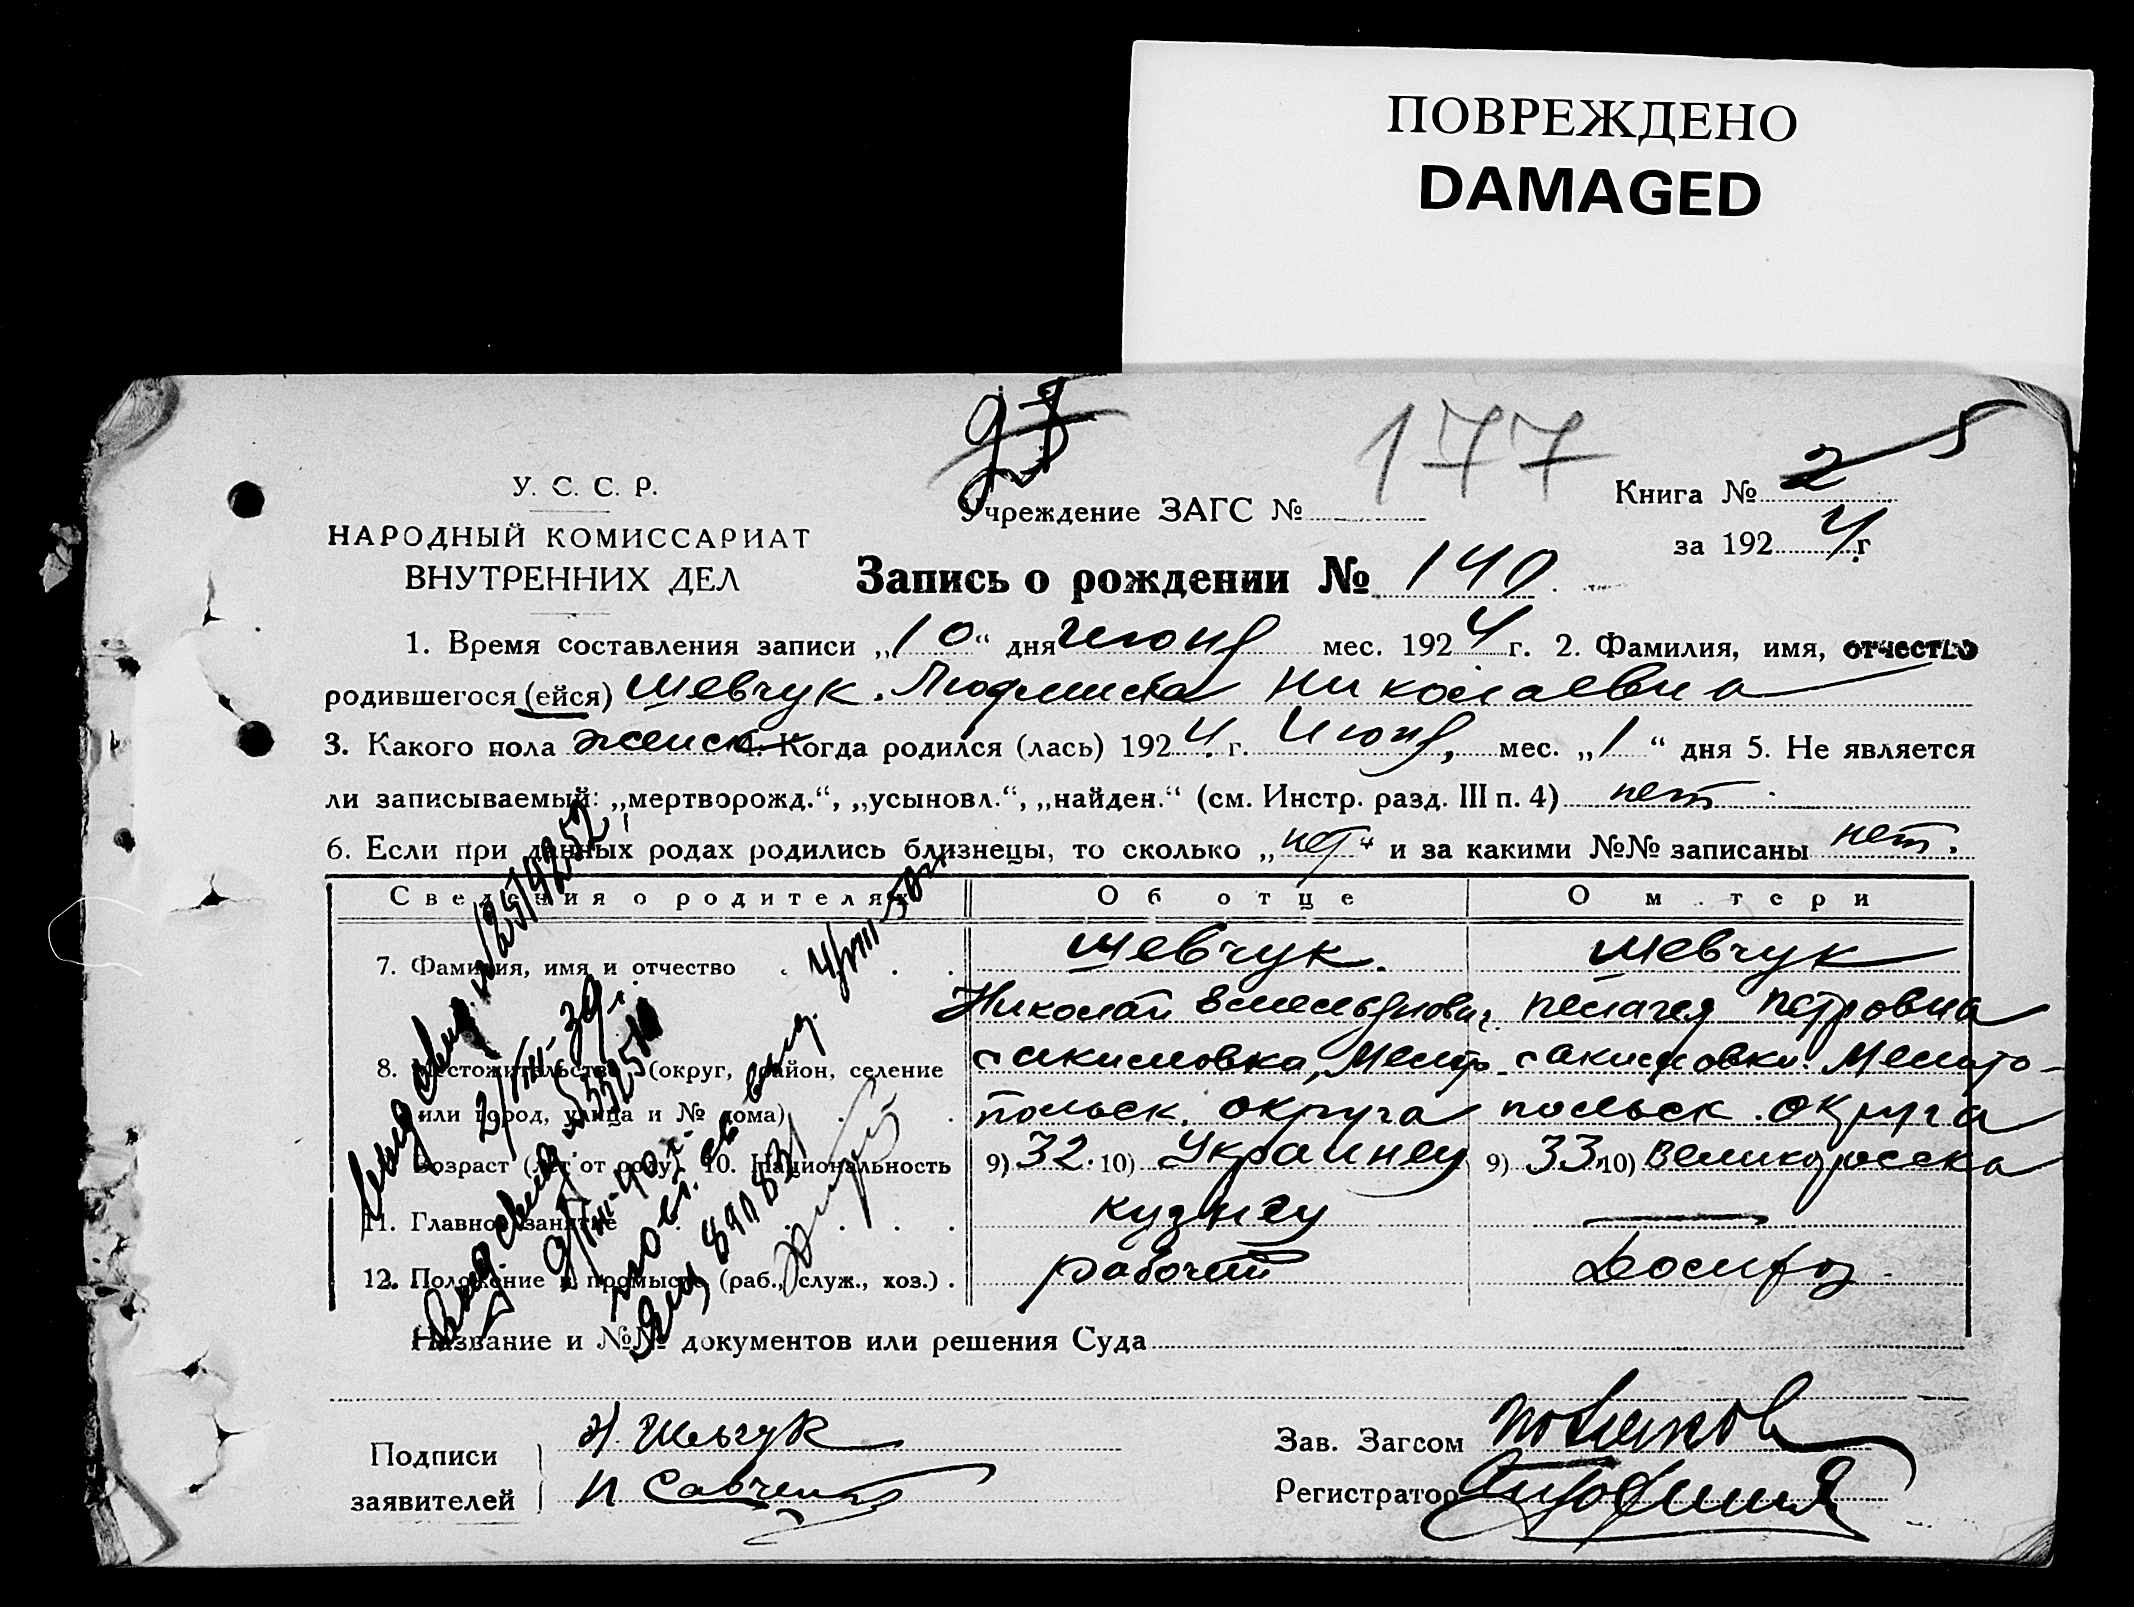 ПОВРЕЖДЕНО
DAMAGED
177
У. С. С. Р.
НАРОДНЫЙ КОМИССАРИАТ
ВНУТРЕННИХ ДЕЛ
Учреждение ЗАГС №
Книга № 2 5
за 1924 г.
Запись о рождении № 140
1. Время составления записи „10“ дня Июня мес. 1924 г. 2. Фамилия, имя, отчество
родившегося (ейся) Шевчук Людмила Николаевна
3. Какого пола женск 4. Когда родился (лась) 1924 г. Июня, мес. „1“ дня 5. Не является
ли записываемый: „мертворожд.“, „усыновл.“, „найден.“ (см. Инстр. разд. III п. 4) нет
6. Если при данных родах родились близнецы, то сколько „нет“ и за какими №№ записаны нет.
Сведения о родителях Об отце О м.тери
7. Фамилия, имя и отчество Шевчук. Шевчук
Николай Емельянович Пелагея Петровна
8. Местожительство (округ, район, селение с акимовка, Мелито- с акимовка. Мелито-
или город, улица и № дома) польск. округа польск. округа
Возраст (лет от роду). 10. Национальность 9) 32. 10) Украинец 9) 33 10) Великоросска
11. Главное занятие кузнец —
12. Положение в промысле (раб., служ., хоз.) рабочий Домхоз
Название и №№ документов или решения Суда
Подписи заявителей
Н. Шевчук
П Савченко
Зав. Загсом
Регистратор